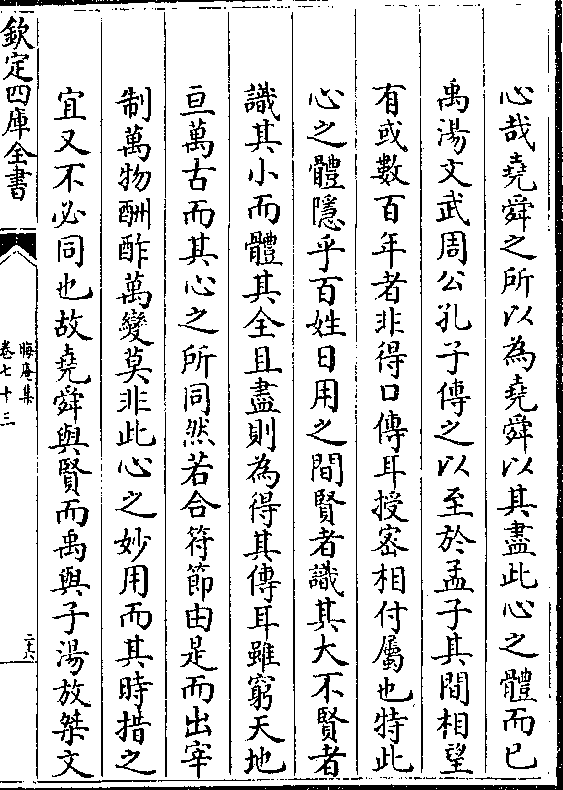 心哉堯舜之所以為堯舜以其盡此心之體而已
禹湯文武周公孔子傳之以至於孟子其間相望
有或數百年者非得口傳耳授宻相付屬也特此
心之體隱乎百姓日用之間賢者識其大不賢者
識其小而體其全且盡則為得其傳耳雖窮天地
亘萬古而其心之所同然若合符節由是而出宰
制萬物酬酢萬變莫非此心之妙用而其時措之
宜又不必同也故堯舜與賢而禹與子湯放桀文
欽定四庫全書
晦庵集
卷七十三
二六